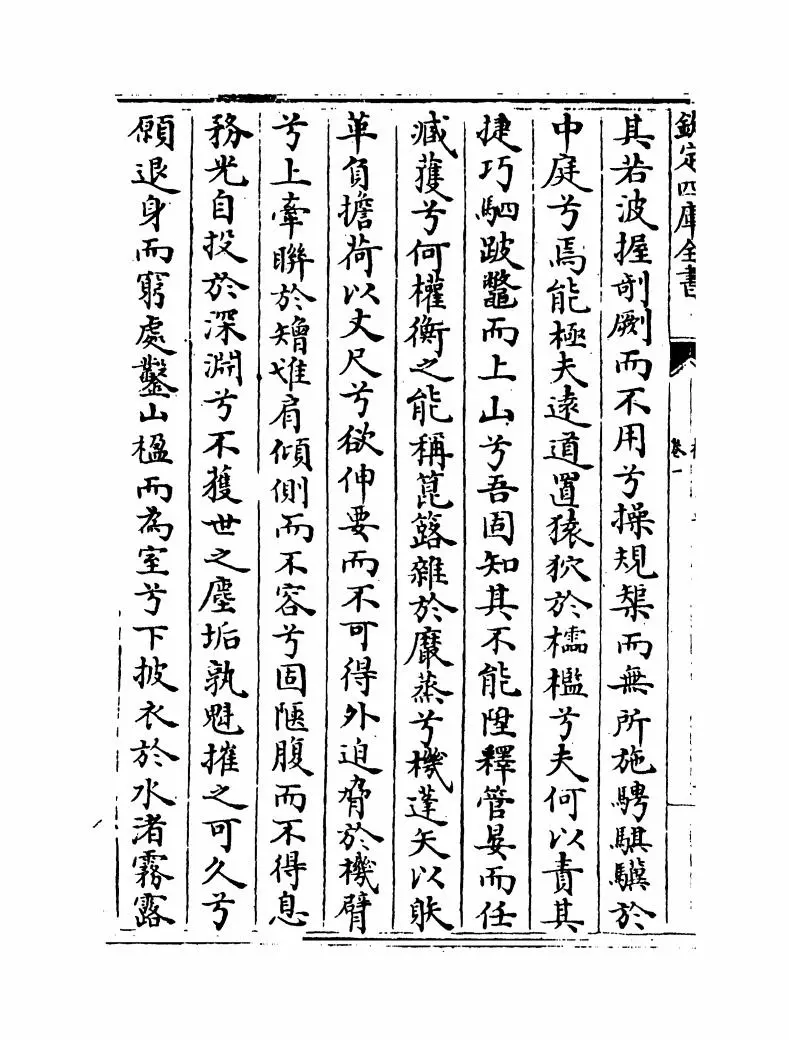 欽定四庫全書
卷一
其若波握剞劂而不用兮操規榘而無所施騁騏驥於
中庭兮焉能極夫逺道置猿狖於櫺檻兮夫何以責其
捷巧駟跛鼈而上山兮吾固知其不能陞釋管晏而任
臧獲兮何權衡之能稱箟簬雜於黀蒸兮機蓬矢以䠶
革負擔荷以丈尺兮欲伸要而不可得外迫脅於機臂
兮上牽聯於矰隿肩傾側而不容兮固陿腹而不得息
務光自投於深淵兮不獲世之塵垢孰魁摧之可久兮
願退身而窮處鑿山楹而為室兮下披衣於水渚霧露